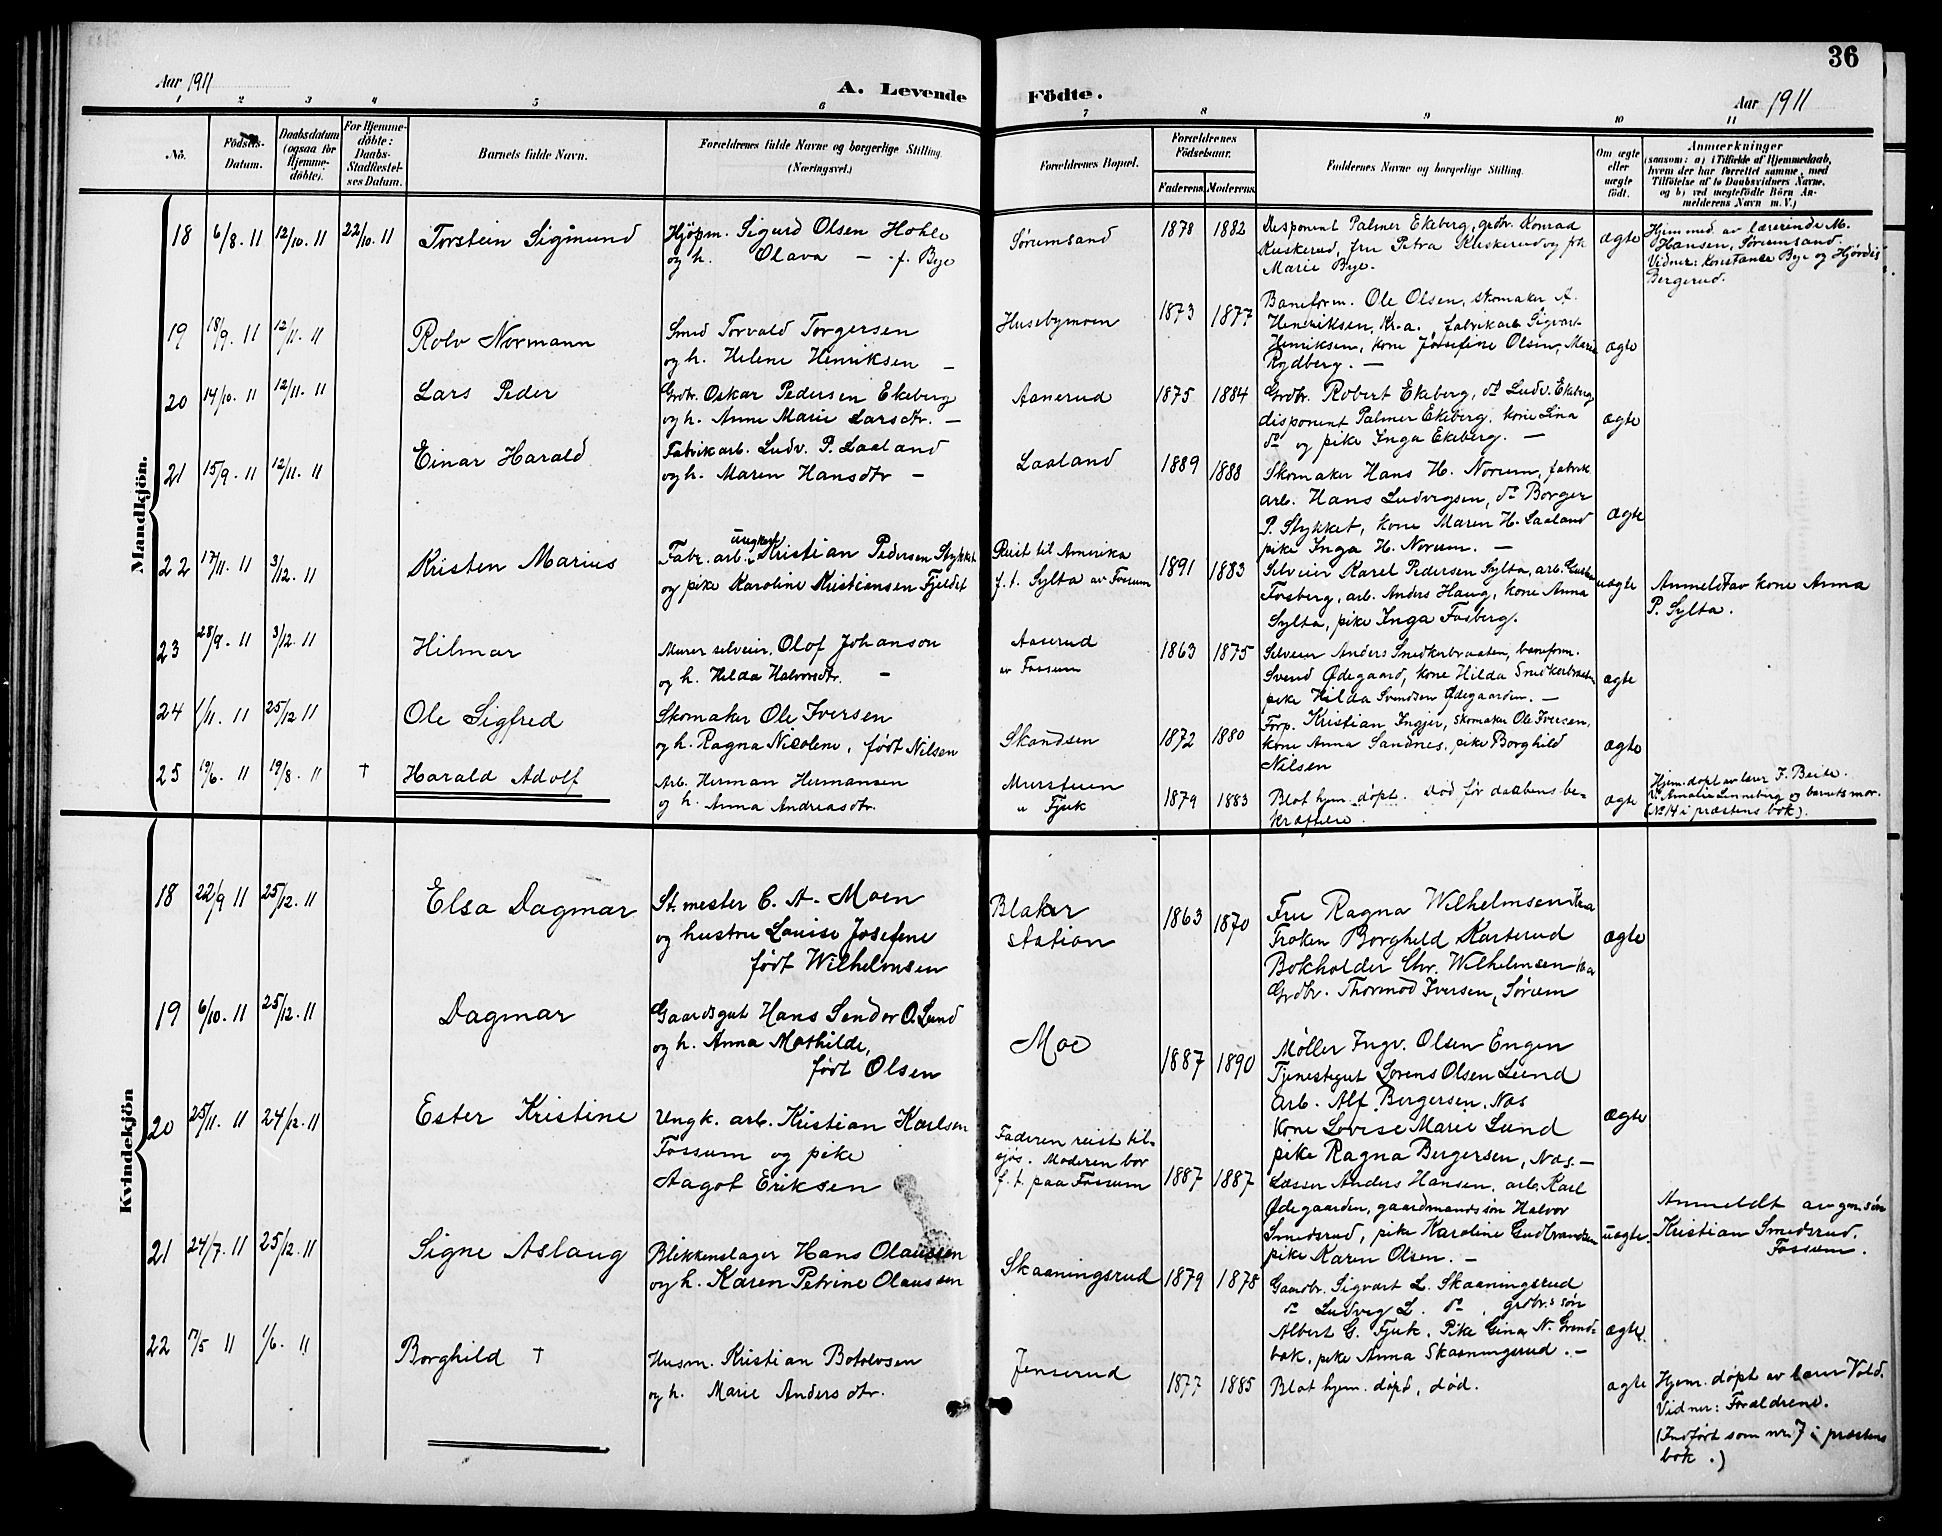 36
Aar 1911
A. Levende Födte.
Aar 1911
1 2 3 4 5 6 7 8 9 10 11
No.
Födsels-Datum.
Daabsdatum (ogsaa for Hjemme-döbte).
For Hjemme-döbte: Daabs-Stadfæstel-ses Datum.
Barnets fulde Navn.
Forældrenes fulde Navne og borgerlige Stilling.
(Næringsvei.)
Forældrenes Bopæl.
Forældrenes Födselsaar.
Faderens. Moderens.
Faddernes Navne og borgerlige Stilling.
Om ægte eller uægte födt.
Anmærkninger
(saasom: a) i Tilfælde af Hjemmedaab,
hvem der har forrettet samme, med
Tilföielse af to Daabsvidners Navne,
og b) ved uægtefödte Börn An-
melderens Navn m. V.)
Mandkjön.
18 6/8. 11 12/10. 11 22/10. 11 Torstein Sigmund
Hjöpm. Sigurd Olsen Hohle
og h. Olava — f. Bye
Sørumsand
1878 1882
Disponent Palmer Ekeberg, grdbr. Konrad
Kuskerud, fru Petra Kuskerud og frk
Marie Bye.
ægte
Hjemmed. av lærerinde M.
Hansen, Sørumsand.
Vidner: Konstanse Bye og Hjørdis
Bergerud.
19 18/9. 11 12/11. 11 Rolv Normann
Smed Torvald Torgersen
og h. Helene Henriksen —
Husebymoen
1873 1877
Baneform. Ole Olsen, skomaker A.
Henriksen, Kr.a., fabrikarb. Sigvart
Henriksen, kone Josefine Olsen, Marie
Rydberg. —
ægte
20 14/10. 11 12/11. 11 Lars Peder
Grdbr. Oskar Pedersen Ekeberg
og h. Anne Marie Larsdtr. —
Aanerud
1875 1884
Grdbr. Robert Ekeberg, do Ludv. Ekeberg
disponent Palmer Ekeberg, kone Lina
do og pike Inga Ekeberg. —
ægte
21 15/9. 11 12/11. 11 Einar Harald
Fabrikarb. Ludv. P. Laaland
og h. Maren Hansdtr —
Laaland
1889 1888
Skomaker Hans H. Norum, fabrik
arb. Hans Ludvigsen, do Borger
P. Stykket, kone Maren H. Laaland
pike Inga H. Norum. —
ægte
22 17/11. 11 3/12. 11 Kristen Marius
ungkarl
Fabr. arb. Kristian Pedersen Stykket
og pike Karoline Kristiansen Fjeldet
Reist til Amerika
f. t. Sylta av Fossum
1891 1883
Selveier Karel Pedersen Sylta, arb.
Fosberg, arb. Anders Haug, kone Anna
Sylta, pike Inga Fosberg.
uægte
Anmeldt av kone Anna
P. Sylta.
23 28/9. 11 3/12. 11 Hilmar
Murer selveier, Olof Johanson
og h. Hilda Halvorsdtr. —
Aaserud
av Fossum
1863 1875
Selveier Anders Snekkerbraaten, baneform.
Svend Ødegaard, kone Hilda Snekkerbraaten
pike Hilda Svendsen Ødegaarden. —
ægte
24 1/11. 11 25/12 11 Ole Sigfred
Skomaker Ole Iversen
og h. Ragna Nicolene, født Nilsen
Skandsen
1872 1880
Forp. Kristian Ingjer, skomaker Ole Iversen,
kone Anna Sandnes, pike Borghild
Nilsen
ægte
25 19/6. 11 19/8. 11 † Harald Adolf
Arb. Herman Hermansen
og h. Anna Andreasdtr.
Mursteien
u Fjuk
1879 1883
Blot hjem. døpt. Død før daabens be-
kræftelse.
ægte
Hjem. døpt av lærer F. Beite.
V. Amalie Linneberg og barnets mor.
(No 14 i præstens bok).
Kvindekjön
18 22/9 11 25/12. 11 Elsa Dagmar
St. mester C. A. Moen
og hustru Louise Josefine
født Wilhelmsen
Blaker
station
1863 1870
Fru Ragna Wilhelmsen Kr.a
Frøken Borghild Karterud
Bokholder Chr. Wilhelmsen Kr.a
Grdbr. Thormod Iversen, Sørum
ægte
19 6/10. 11 25/12. 11 Dagmar
Gaardsgut Hans Sendor O. Lund
og h. Anna Mathilde,
født Olsen
Moe
1887 1890
Møller Ingv. Olsen Engen
Tjenestegut Lorens Olsen Lund
Arb. Alf Bergersen, Nas
Kone Lovise Marie Lund
pike Ragna Bergersen, Nas. —
ægte
20 25/11. 11 24/12. 11 Ester Kristine
Ungk. arb. Kristian Karlsen
Fossum og pike
Aagot Eriksen
Faderen reist til-
sjøs. Moderen bor
f. t. paa Fossum
1887 1887
Læsser Anders Hansen, arb. Karl
Ødegaarden, gaardmandssøn Halvor
Smedsrud, pike Karoline Gudbrandsen
pike Karen Olsen. —
uægte.
Anmeldt av gm.søn
Kristian Smedsrud.
Fossum.
21 24/7. 11 25/12. 11 Signe Aslaug
Blikkenslager Hans Olaussen
og h. Karen Petrine Olaussen
Skaaningsrud
1879 1878
Gaardbr. Sigvart L. Skaaningsrud
do Ludvig L. do, grdbr.s søn
Albert G. Fjuk. Pike Gina N. Grind-
bak, pike Anna Skaaningsrud. —
ægte
22 17/5 11 1/6. 11 Borghild †
Husm. Kristian Botolvsen
og h. Marie Andersdtr.
Jenserud
1877 1885
Blot hjem. døpt, død.
ægte
Hjem. døpt av lærer Vold.
Vidner: Forældrene.
(Indført som nr. 7 i præstens
bok.)